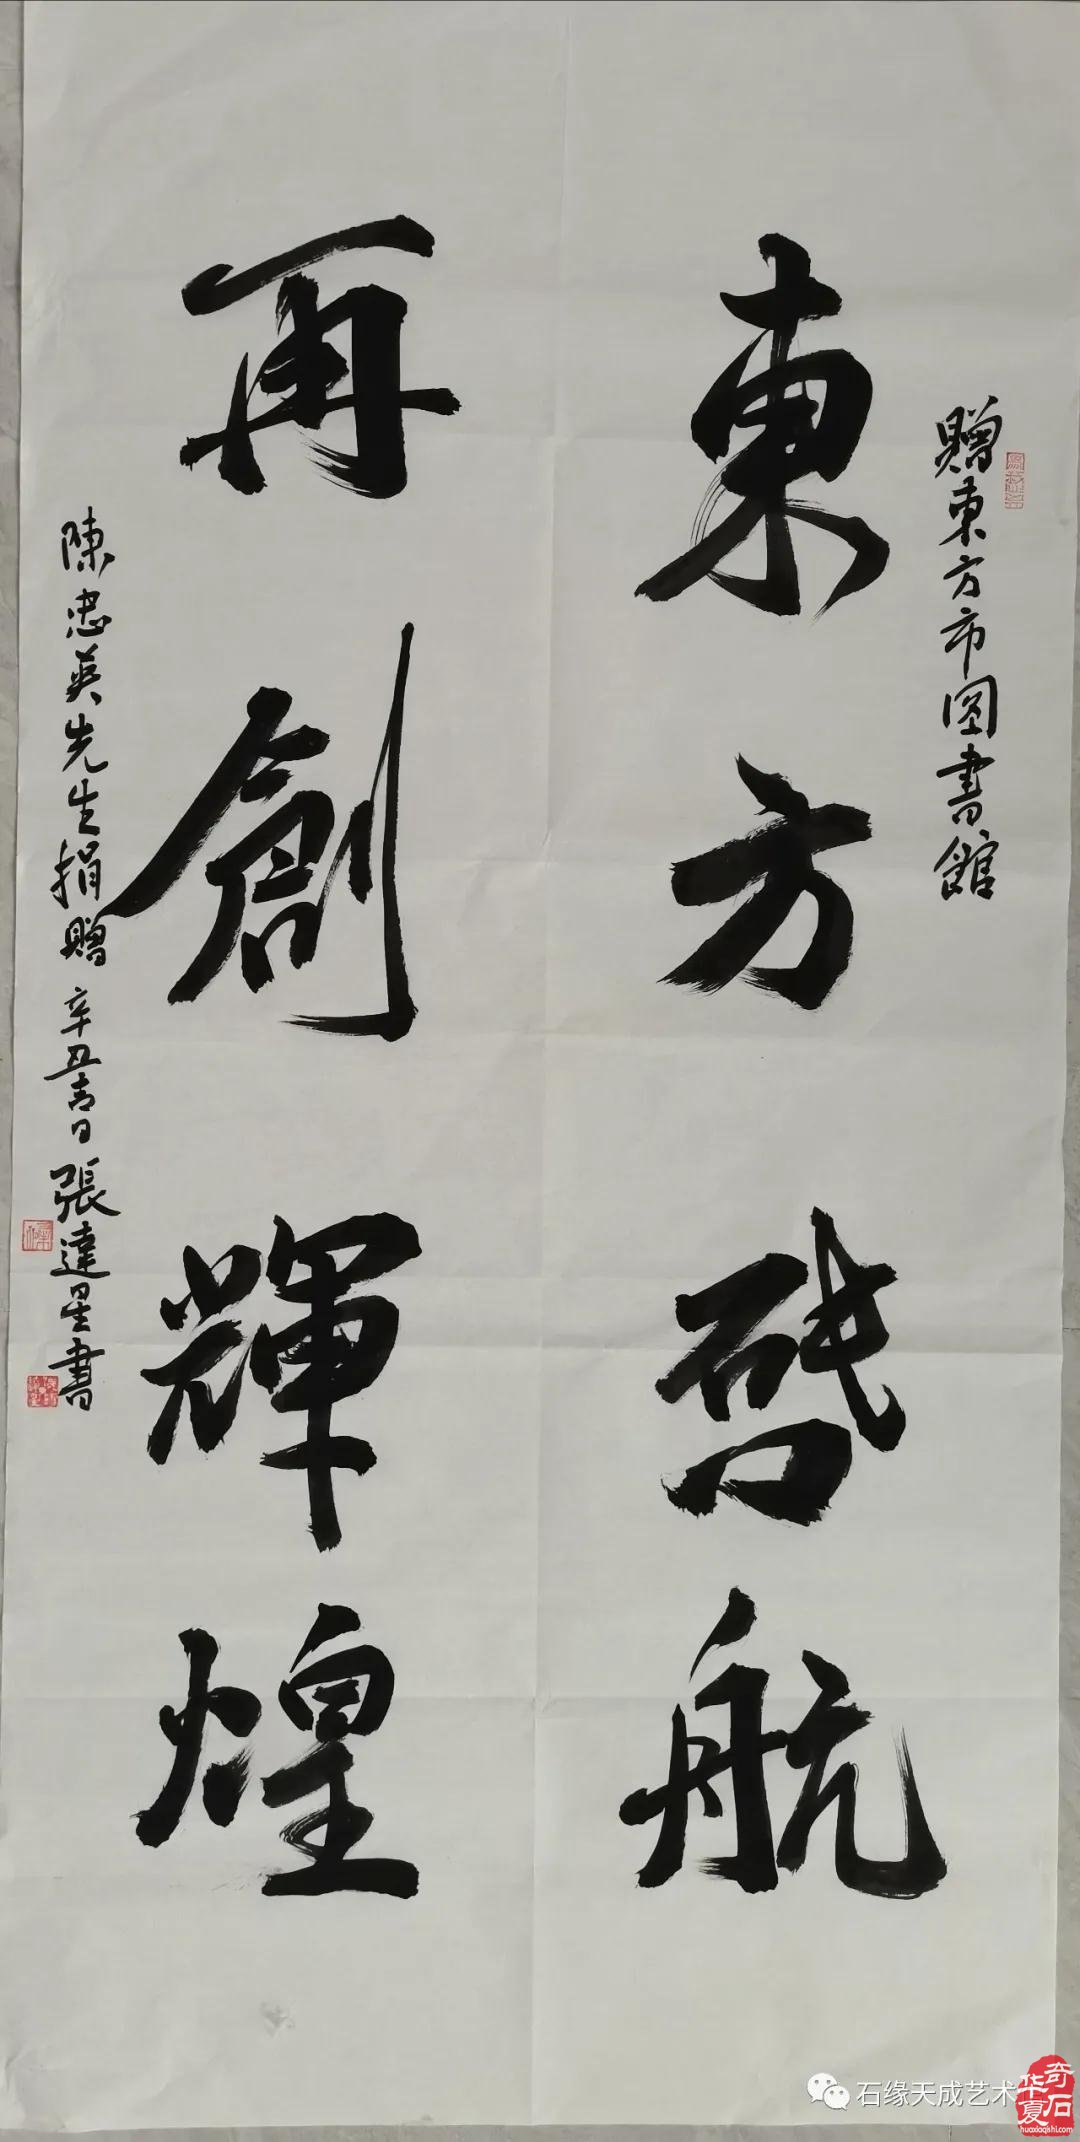 贈東方市图書館
東方啓航
再創輝煌
陳忠英先生捐贈 辛丑春日 張達星書
石缘天成艺术
奇石
华夏
huaxiaqishi.com